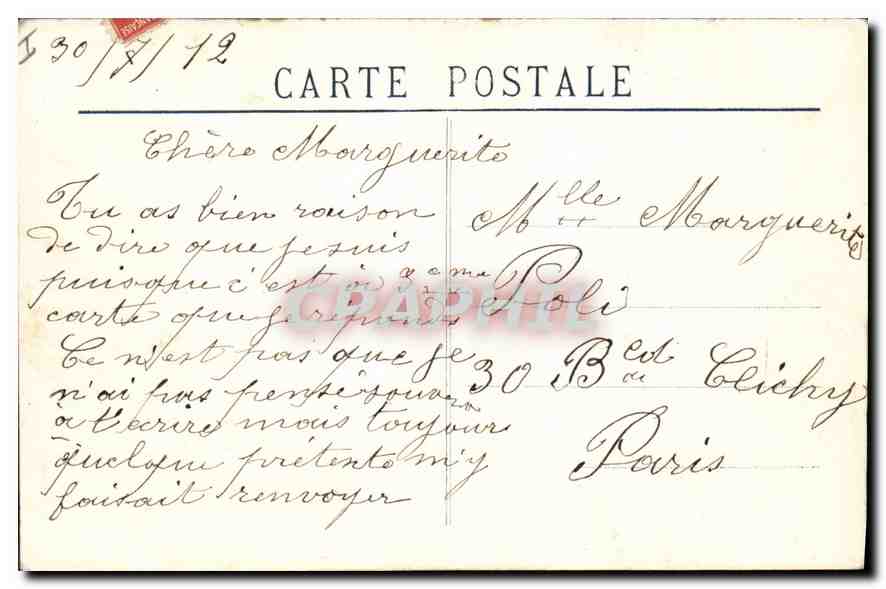 30/7/12
CARTE POSTALE
Chère Marguerite
Tu as bien raison
de dire que je suis
puisque c'est à 3eme
carte que je réponds
Ce n'est pas que je
n'ai pas pensé souven
à t'écrire mais toujour
quelque prétexte m'y
faisait renvoyer
Mlle Marguerite
Poli
30 Bd de Clichy
Paris
CPAPHIL